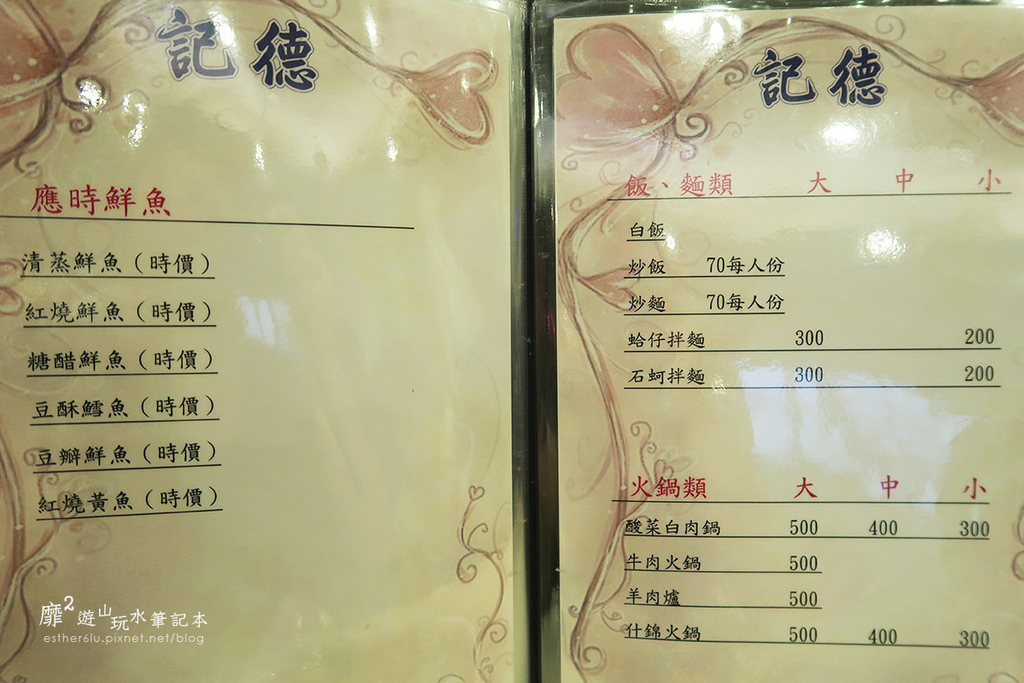 記德
應時鮮魚
清蒸鮮魚(時價)
紅燒鮮魚(時價)
糖醋鮮魚(時價)
豆酥鱈魚(時價)
豆瓣鮮魚(時價)
紅燒黃魚(時價)
靡2遊山玩水筆記本
esther6lu.pixnet.net/blog
記德
飯、麵類 大 中 小
白飯
炒飯 70每人份
炒麵 70每人份
蛤仔拌麵 300 200
石蚵拌麵 300 200
火鍋類 大 中 小
酸菜白肉鍋 500 400 300
牛肉火鍋 500
羊肉爐 500
什錦火鍋 500 400 300